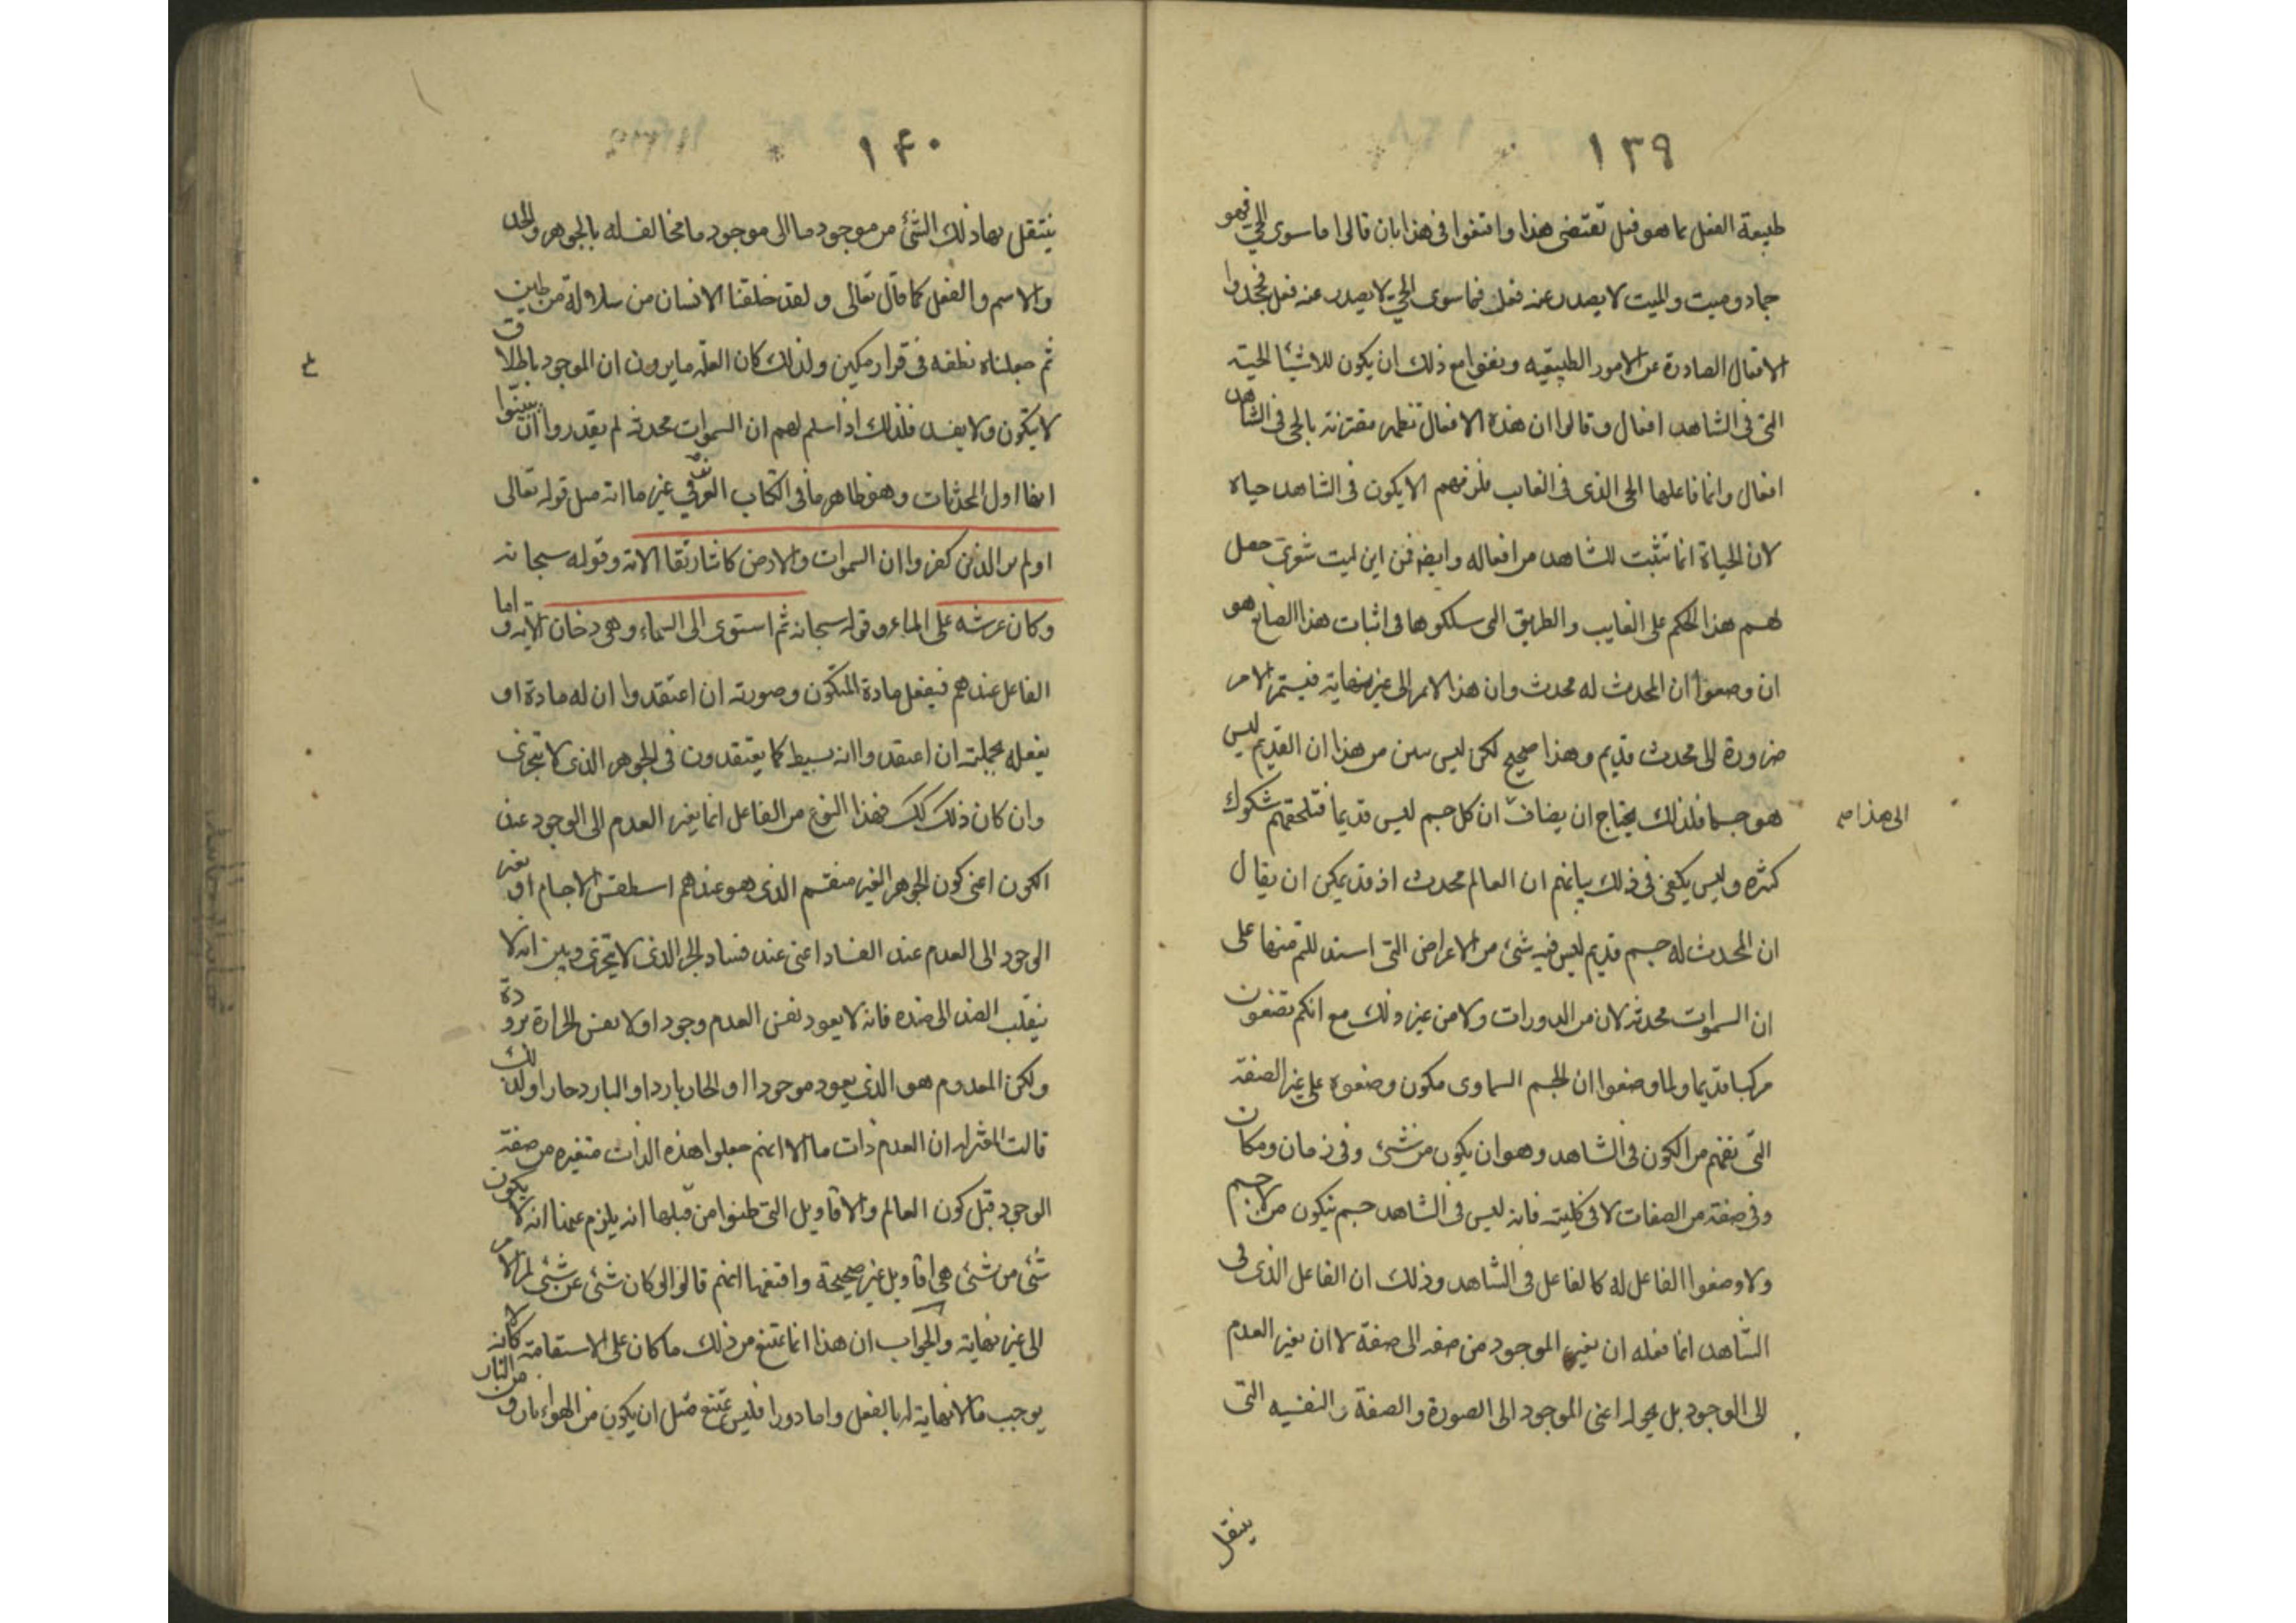 ١٣٩
طبيعة الفعل بما هو فعل تقتضى هذا واقتفوا فى هذا بان قالوا ما سوى الحي فهو
جماد وميت والميت لا يصدر عنه فعل فما سوى الحي لا يصدر عنه فعل فجحدوا
الافعال الصادرة عن الامور الطبيعيه ونفوا مع ذلك ان يكون للاشيا الحية
التى فى الشاهد افعال وقالوا ان هذه الافعال تظهر مقترنة بالحى فى الشاهد
افعال وانما فاعلها الحى الذى فى الغايب فلزمهم الا يكون فى الشاهد حياه
لان الحياة انما تثبت للشاهد من افعاله وايضا فمن اين ليت شعرى حصل
لهم هذا الحكم على الغايب والطريق التى سلكوها فى اثبات هذا الصانع هو
ان وضعوا ان المحدث له محدث وان هذا الامر الى غير نهاية فيستمر الامر
الى هذا صح
ضرورة الى محدث قديم وهذا صحيح لكن ليس يبين من هذا ان القديم ليس
هو جسما فلذلك يحتاج ان يضاف ان كل جسم ليس قديما فتلحقهم شكوك
كثيره وليس يكفى فى ذلك بيانهم ان العالم محدث اذ قد يمكن ان يقال
ان المحدث له جسم قديم ليس فيه شئ من الاعراض التى استدللتم منها على
ان السموات محدثه لا من الدورات ولا من غير ذلك مع انكم تضعون
مركبا قديما ولما وضعوا ان الجسم السماوى مكون وضعوه على غير الصفة
التى نفهم من الكون فى الشاهد وهو ان يكون من شئ وفى زمان ومكان
وفى صفة من الصفات لا فى كليته فانه ليس فى الشاهد جسم يتكون من لا جسم
ولا وضعوا الفاعل له كالفاعل فى الشاهد وذلك ان الفاعل الذى فى
الشاهد انما فعله ان يغير الموجود من صفه الى صفة لا ان يغير العدم
الى الوجود بل يحوله اعنى الموجود الى الصورة والصفة النفسيه التى
ينتقل
١٤٠
ينتقل بها ذلك الشئ من موجود ما الى موجود ما مخالف له بالجوهر والحد
والاسم والفعل كما قال تعالى ولقد خلقنا الانسان من سلالة من طين
ثم جعلناه نطفه فى قرار مكين ولذلك كان القدما يرون ان الموجود باطلاق
لا يتكون ولا يفسد فلذلك اذا سلم لهم ان السموات محدثه لم يقدروا ان يبينوا
انها اول المحدثات وهو ظاهر ما فى الكتاب العزيز فى غير ما اية مثل قوله تعالى
اولم ير الذين كفروا ان السموات والارض كانتا رتقا الاية وقوله سبحانه
وكان عرشه على الماء وقوله سبحانه ثم استوى الى السماء وهى دخان الاية واما
الفاعل عندهم فيفعل مادة المتكون وصورته ان اعتقدوا ان له مادة او
يفعله بجملته ان اعتقدوا انه بسيط كما يعتقدون فى الجوهر الذى لا يتجزى
وان كان ذلك كك فهذا النوع من الفاعل انما يغير العدم الى الوجود عند
الكون اعنى كون الجوهر الغير منقسم الذى هو عندهم اسطقس الاجسام او يغير
الوجود الى العدم عند الفساد اعنى عند فساد الجزء الذى لا يتجزى وبين انه لا
ينقلب الضد الى ضده فانه لا يعود نفس العدم وجودا ولا نفس الحرارة برودة
ولكن المعدوم هو الذى يعود موجودا والحار باردا والبارد حارا ولذلك
قالت المعتزله ان العدم ذات ما الا انهم جعلوا هذه الذات متغيره من صفة
الوجود قبل كون العالم والاقاويل التى ظنوا من قبلها انه يلزم عنها انه لا يكون
شئ من شئ هى اقاويل غير صحيحة واقنعها انهم قالوا لو كان شئ عن شئ لمر الامر
الى غير نهاية والجواب ان هذا انما يمتنع من ذلك ما كان على الاستقامة لانه كان
يوجب ما لا نهاية له بالفعل واما دورا فليس يمتنع مثل ان يكون من الهواء نار ومن النار